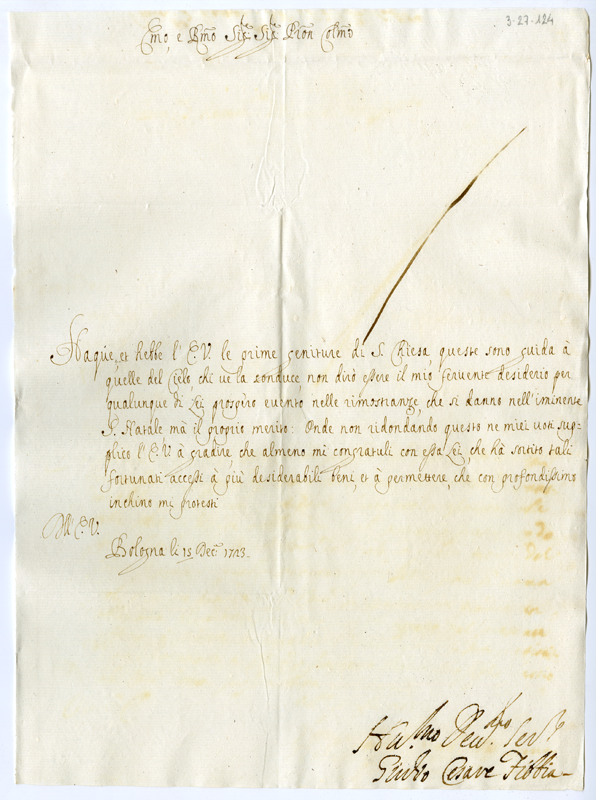 3-27-124
Emo, e Rmo Sig.re Sig.re Pron Colmo
Naque, et hebbe l'E.V. le prime geniture di S. Chiesa, queste sono guida à
quelle del Cielo, chi ve la conduce, non dirò essere il mio fervente desiderio per
qualunque di Lei prospero evento nelle rimostranze, che si danno nell'iminente
S. Natale mà il proprio merito: Onde non ridondando questo ne miei voti sup-
plico l'E.V. à gradire, che almeno mi congratuli con essa Lei, che hà sortito tali
fortunati accessi à più desiderabili beni, et à permettere, che con profondissimo
inchino mi protesti
All'E.V.
Bologna li 15 Dec. 1723.
Hu.mo Deu. Ser.
Giulio Cesare Fibbia